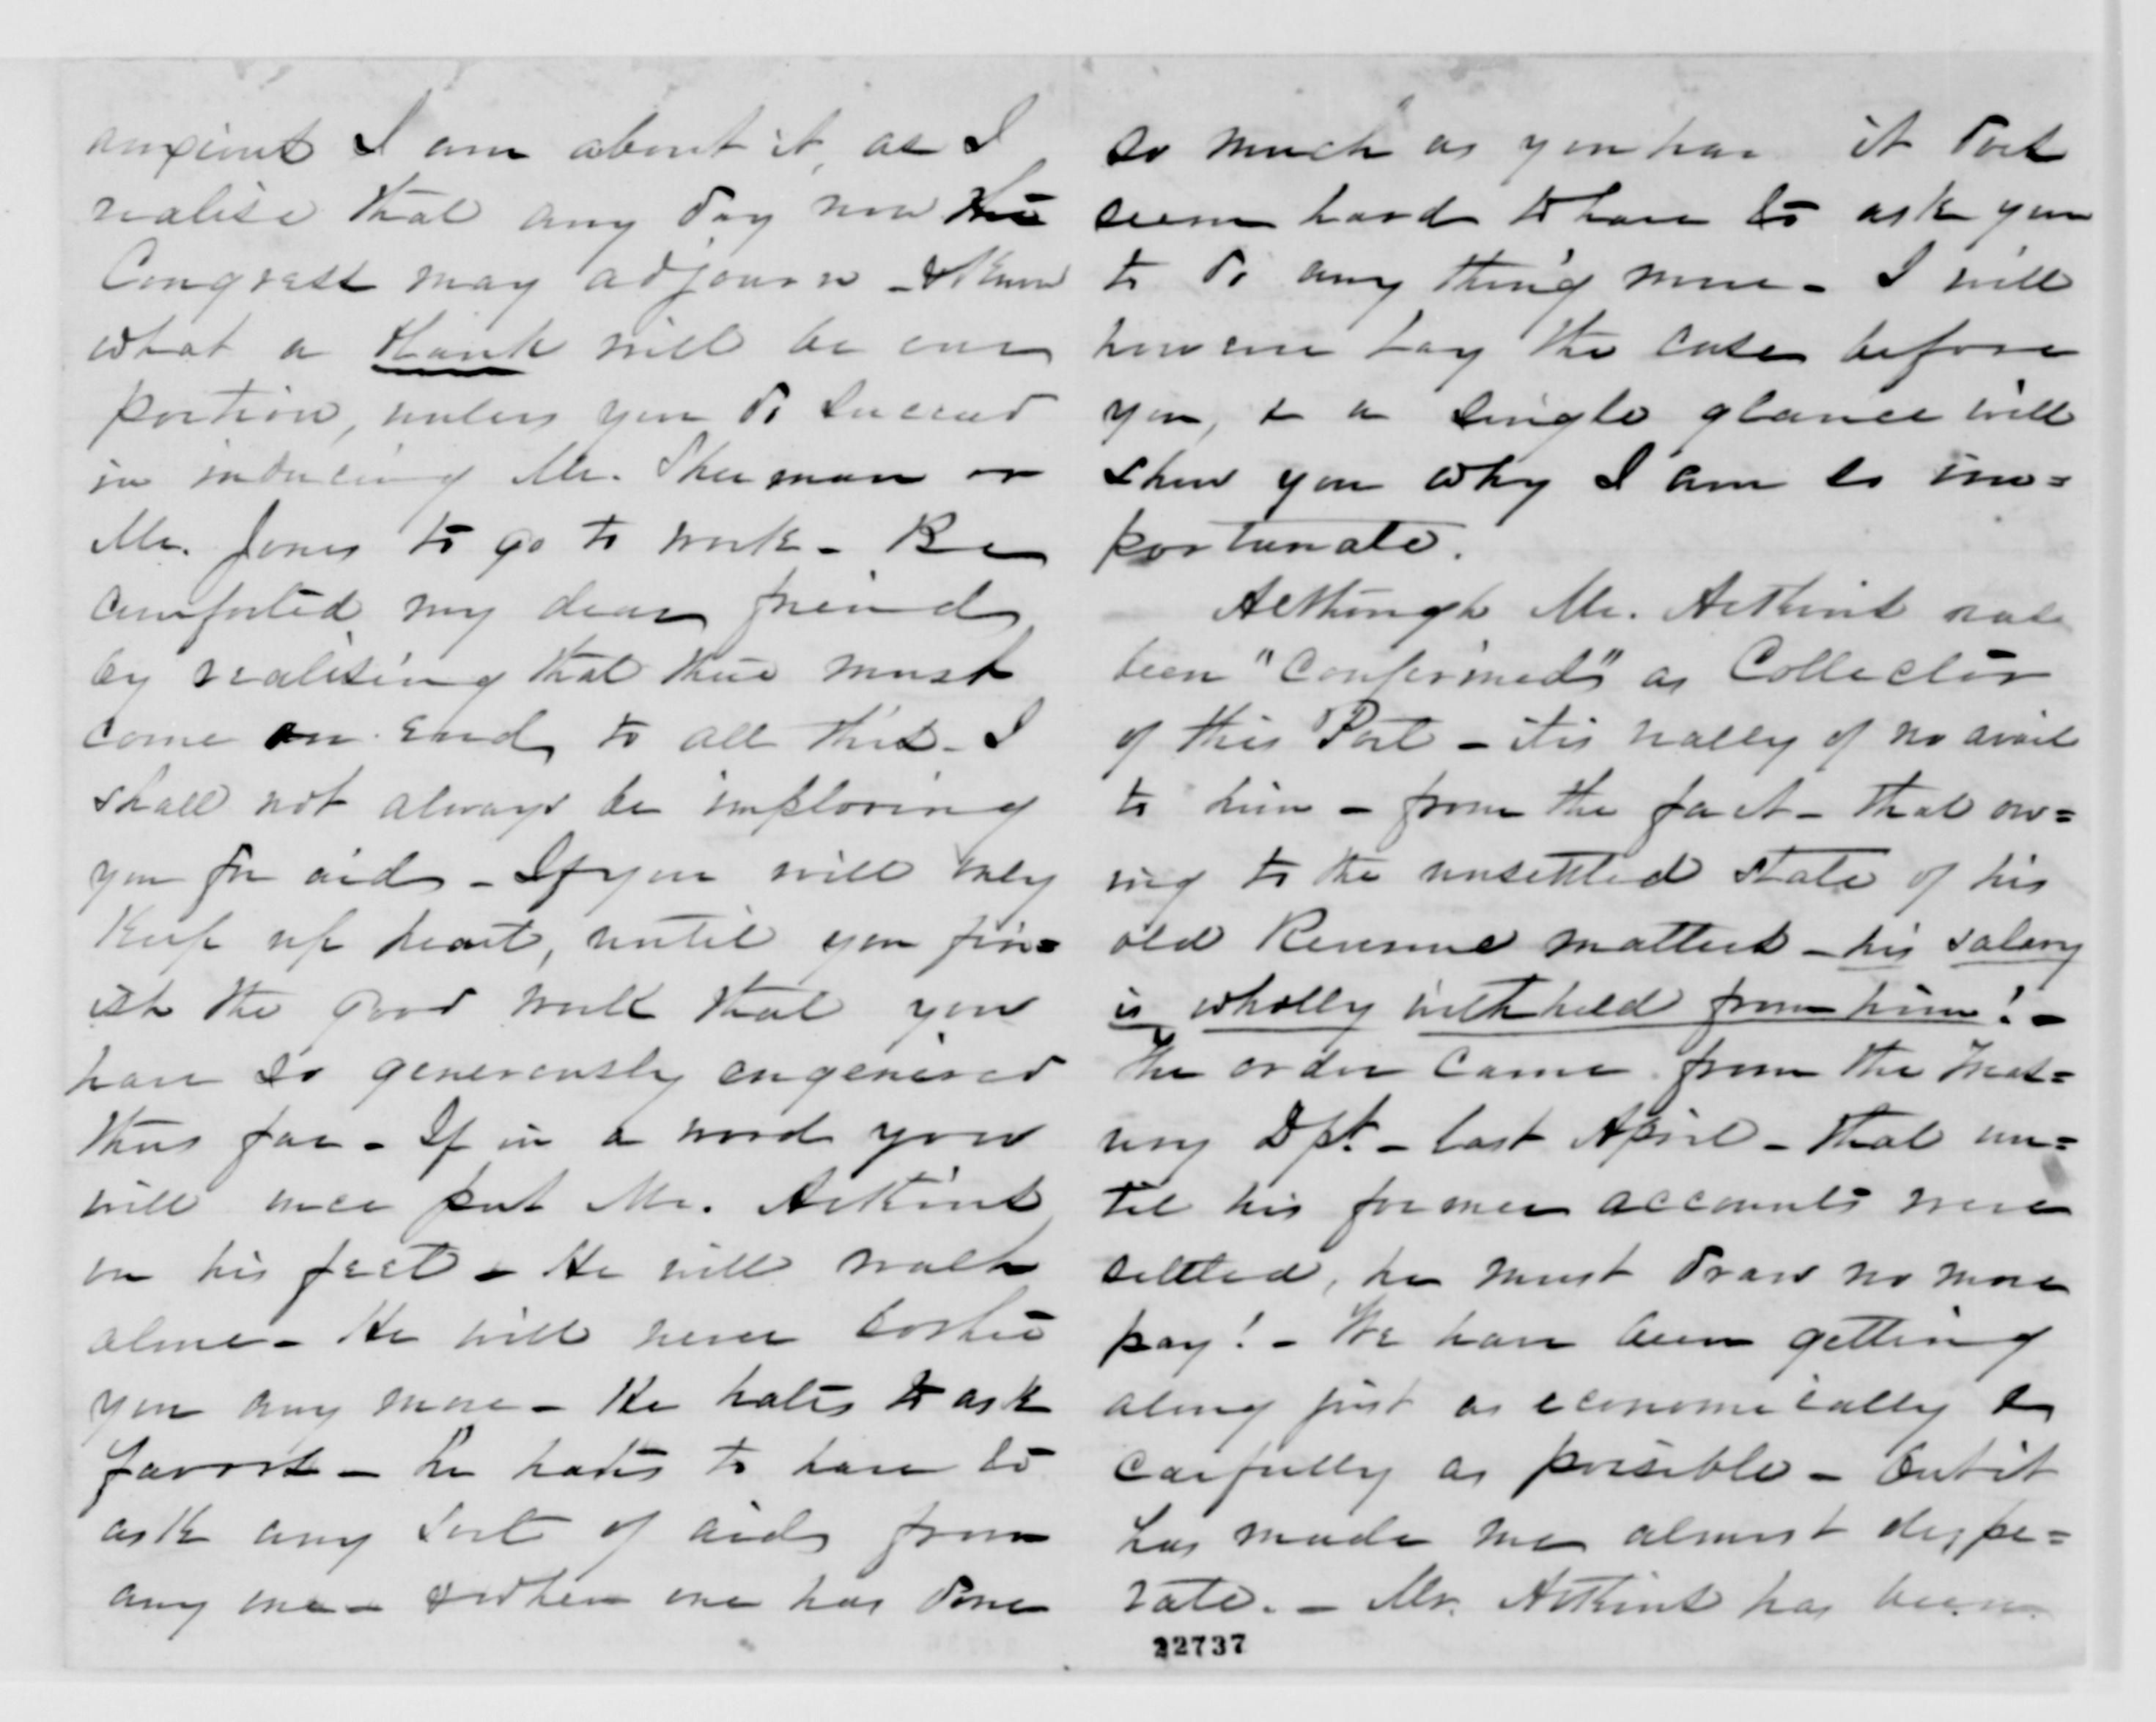 anxious I am about it, as I
realise that any day now the
Congress may adjourn - & know
what a blank will be our
portion, unless you do succeed
in inducing Mr. Sherman or
Mr. Jones to go to work - Be
comforted my dear friend
by realising that there must
come an end to all this - I
shall not always be imploring
you for aid - If you will only
Keep up heart, until you fin=
ish the good work that you
have so generously engeneered
thus far - If in a word you
will once put Mr. Atkins
on his feet - He will walk
alone - He will never bother
you any more - He hates to ask
favors - he hates to have to
ask any sort of aid from
any one - & when one has done
so much as you have it does
seem hard to have to ask you
to do any thing more - I will
however lay the case before
you, & a single glance will
show you why I am so im=
portunate.
Although Mr. Atkins has
been "Confirmed" as Collector
of this Port - itis really of no avail
to him - from the fact - that ow=
ing to the unsettled state of his
old Revenue matters - his salary
is wholly withheld from him! -
The order came from the Treas=
ury Dpt. - last April - that un=
til his former accounts were
settled, he must draw no more
pay! - We have been getting
along just as economically &
carfully as possible - but it
has made me almost despe=
rate. - Mr. Atkins has been
22737